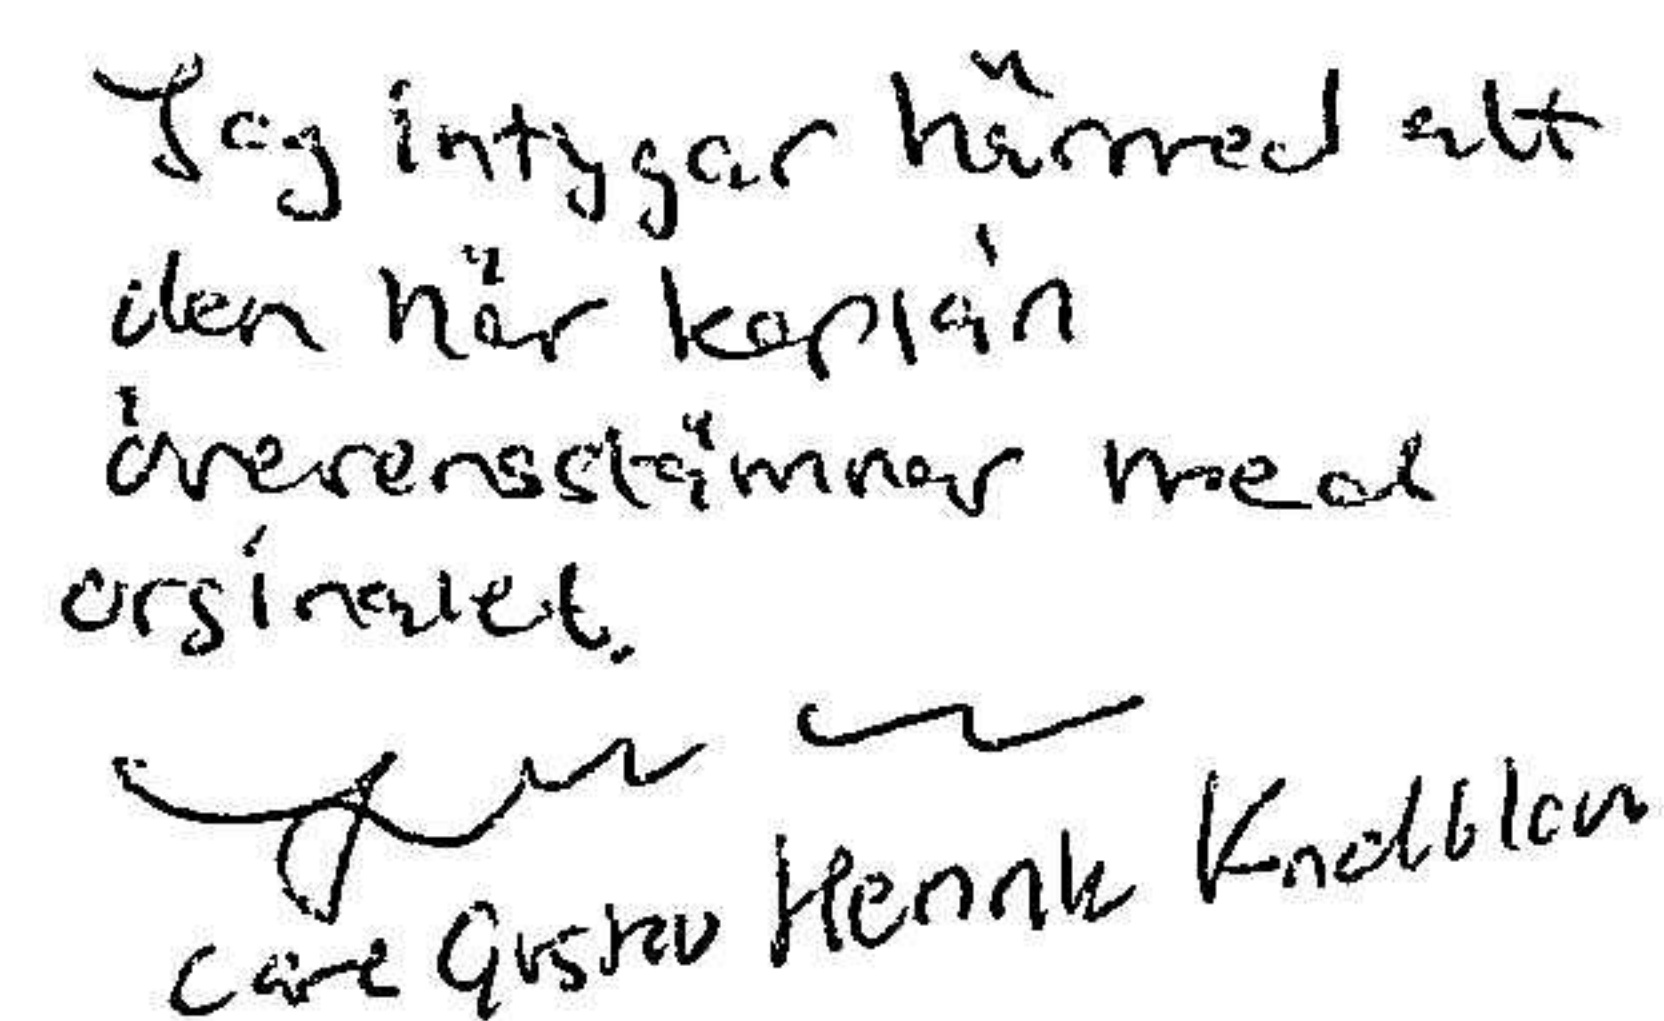 Jag intygar härmed att
den här kopian
överensstämmer med
orginalet.
Gustav Henrik